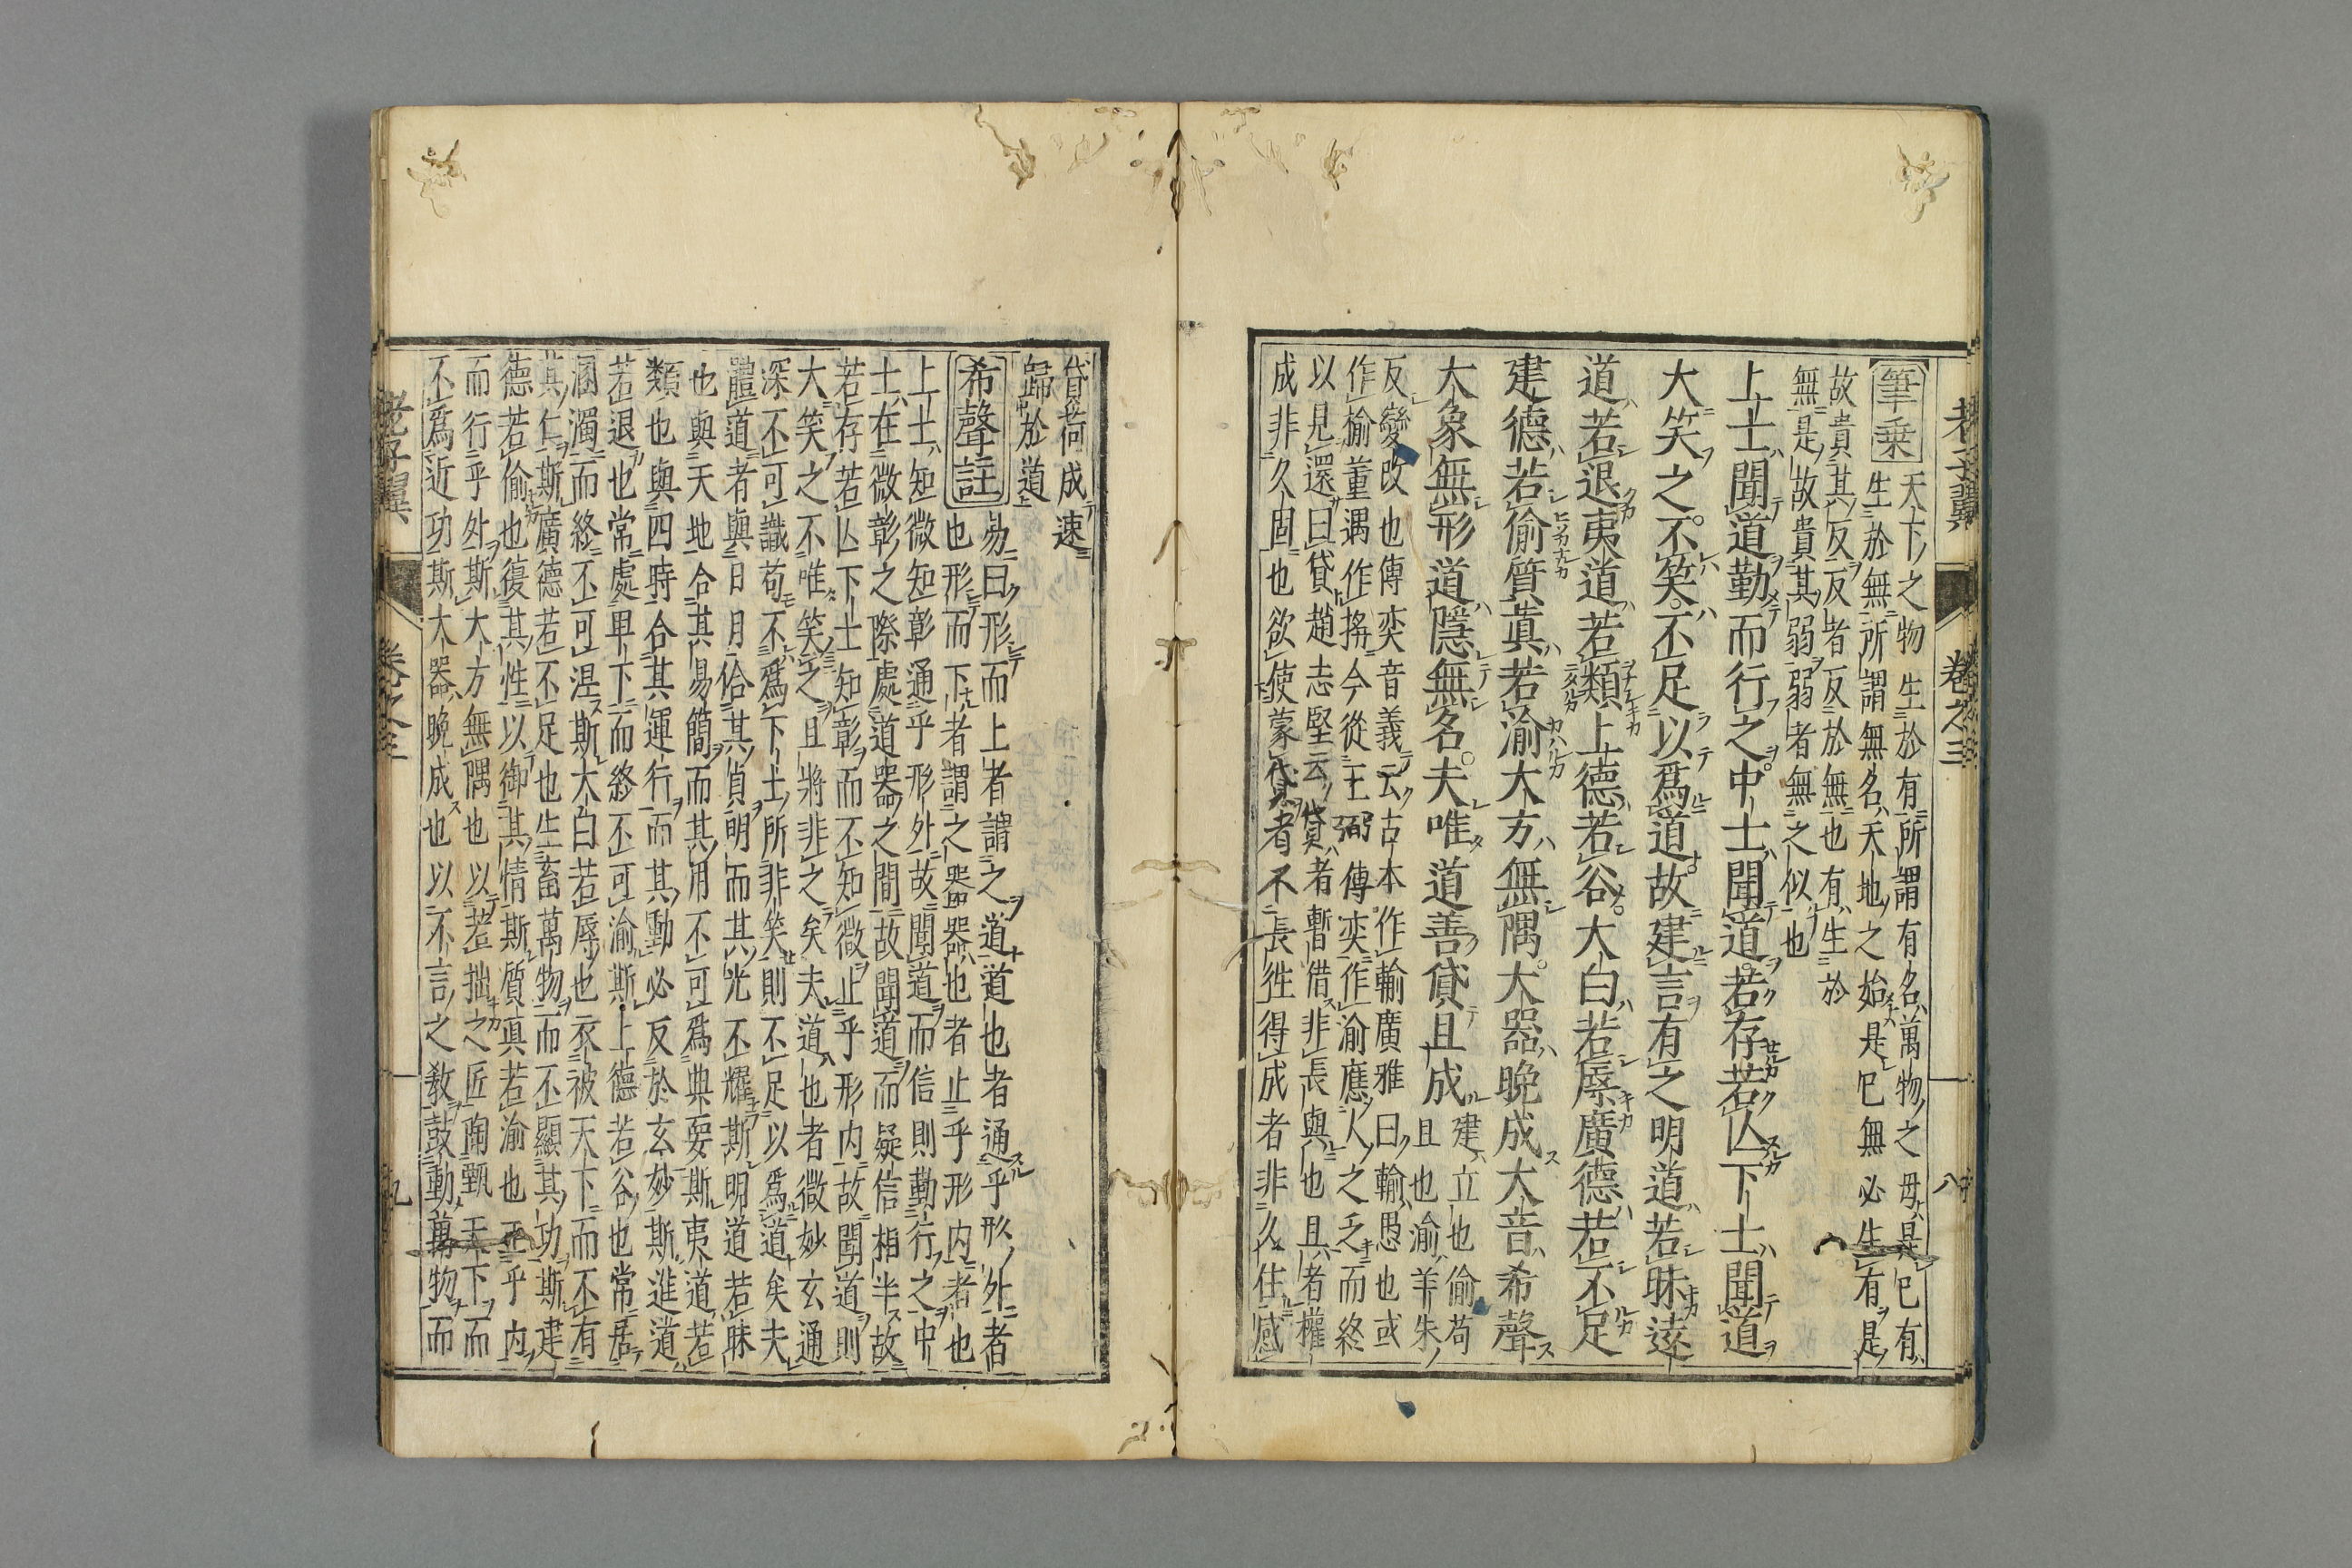 老子翼 卷之三 八
筆乗 天下之物生於有所謂有名萬物之母是已有
生於無所謂無名天地之始是已無必生有是
故貴其反反者反於無也有生於
無是故貴其弱弱者無之似也
上士聞道勤而行之中士聞道若存若亾下士聞道
大笑之不笑不足以爲道故建言有之明道若昧遠
道若退夷道若類上德若谷大白若辱廣德若不足
建德若偷質真若渝大方無隅大器晩成大音希聲
大象無形道隱無名夫唯道善貸且成
建立也偷苟
且也渝羊朱
反變改也傳奕音義云古本作輸廣雅曰輸愚也或
作揄董遇作搖今從王弼傳奕作渝應人之乏而終
以見還曰貸趙志堅云貸者暫借非長與也且者權
成非久固也欲使蒙貸者不長徃得成者非久住感
貸荷成速
歸於道
希聲註 易曰形而上者謂之道道也者通乎形外者
也形而下者謂之器器也者止乎形内者也
上士知微知彰通乎形外故聞道而信則勤行之中
士在微彰之際處道器之間故聞道而疑信相半故
若存若亾下士知彰而不知微止乎形内故聞道則
大笑之不唯笑之且將非之矣夫道也者微妙玄通
深不可識苟不爲下士所非笑則不足以爲道矣夫
體道者與日月佮其貞明而其光不耀斯明道若昧
也與天地合其易簡而其用不可爲典要斯夷道若
類也與四時合其運行而其動必反於玄妙斯進道
若退也常處卑下而終不可渝斯上德若谷也常居
溷濁而終不可涅斯大白若辱也衣被天下而不有
其仁斯廣德若不足也生畜萬物而不顯其功斯建
德若偷也復其性以御其情斯質真若渝也正乎内
而行乎外斯大方無隅也以若拙之匠陶甄天下而
不爲近功斯大器晩成也以不言之敎鼓動萬物而
老子翼 卷之三 九